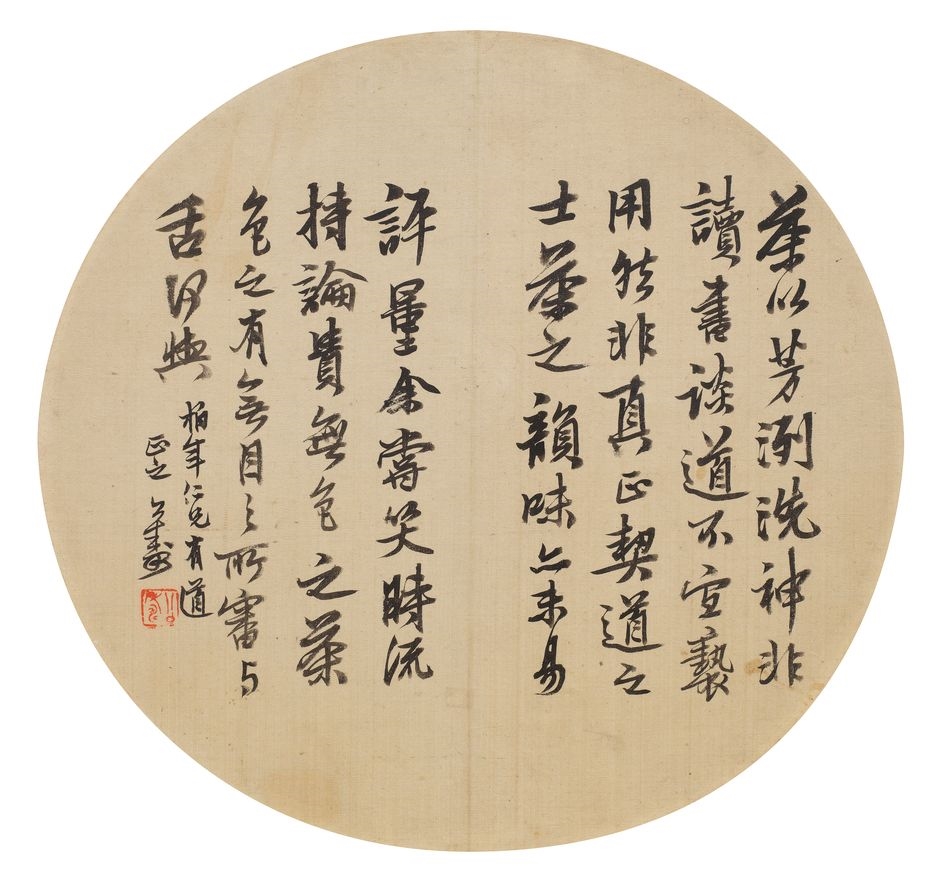 茶以芳洌洗神非
讀書談道不宣褻
用然非真正契道之
士茶之韻味亦未易
評量余嘗笑時流
持論貴無色之茶
色之有無目之所審与
舌何與
柏年仁兄有道
正之 公壽